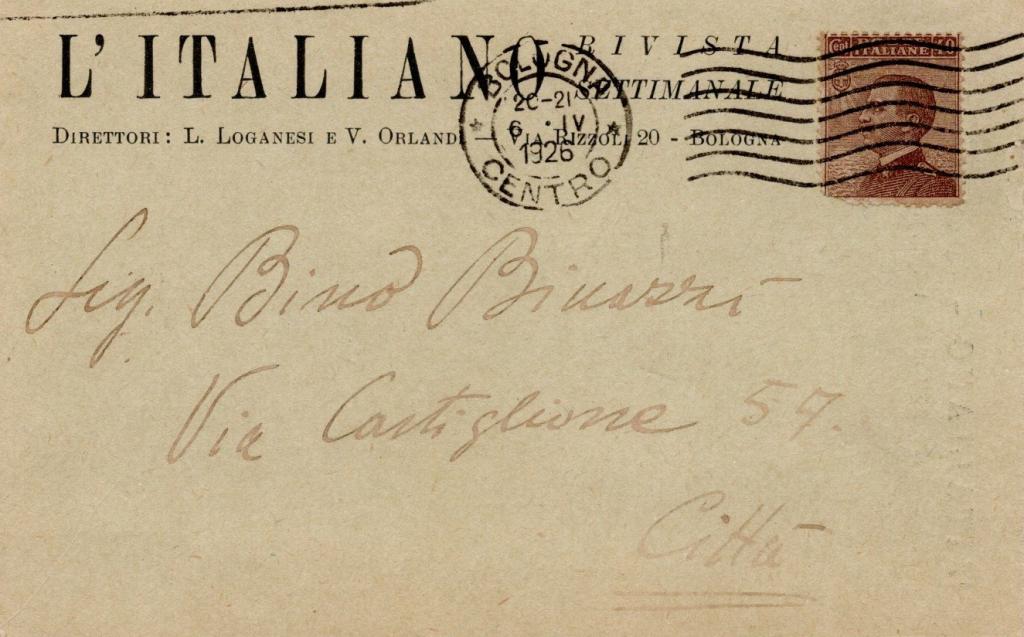 L'ITALIANO RIVISTA
SETTIMANALE
DIRETTORI: L. LOGANESI E V. ORLANDI VIA RIZZOLI 20 - BOLOGNA
BOLOGNA
20-21
6 . IV
1926
CENTRO
ITALIANE
Sig. Bino Binazzi
Via Castiglione 57.
Città